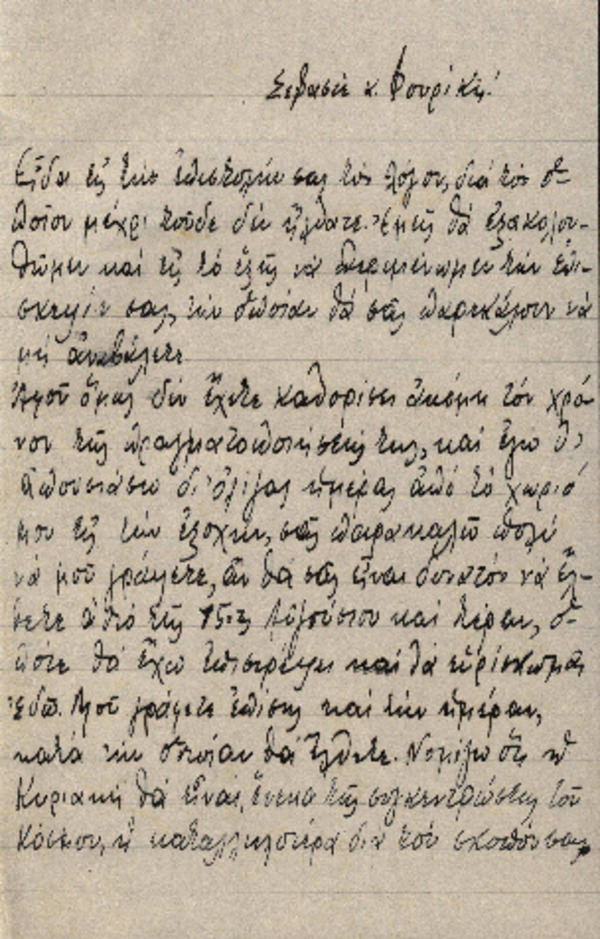 Σεβαστὲ κ. Φουρίκη!
Εἶδα εἰς τὴν ἐπιστολήν σας τὸν λόγον, διὰ τὸν ὁ-
ποῖον μέχρι τοῦδε δὲν ἤλθατε. Ἐμεῖς θὰ ἐξακολου-
θῶμεν καὶ εἰς τὸ ἑξῆς νὰ περιμένωμεν τὴν ἐπί-
σκεψίν σας, τὴν ὁποίαν θὰ σᾶς παρεκάλουν νὰ
μὴ ἀναβάλετε
Ἀφοῦ ὅμως δὲν ἔχετε καθορίσει ἀκόμη τὸν χρό-
νον τῆς πραγματοποιήσεώς της, καὶ ἐγὼ θὰ
ἀπουσιάσω δι' ὀλίγας ἡμέρας ἀπὸ τὸ χωριό
μου εἰς τὴν ἐξοχήν, σᾶς παρακαλῶ πολὺ
νὰ μοῦ γράψετε, ἂν θὰ σᾶς εἶναι δυνατὸν νὰ ἔλ-
θετε ἀπὸ τῆς 15ης Αὐγούστου καὶ πέραν, ὁ-
πότε θὰ ἔχω ἐπιστρέψει καὶ θὰ εὑρίσκωμαι
ἐδῶ. Μοῦ γράφετε ἐπίσης καὶ τὴν ἡμέραν,
κατὰ τὴν ὁποίαν θὰ ἔλθετε. Νομίζω ὅτι ἡ
Κυριακὴ θὰ εἶναι, ἕνεκα τῆς συγκεντρώσεως τοῦ
κόσμου, ἡ καταλληλοτέρα διὰ τὸν σκοπόν σας